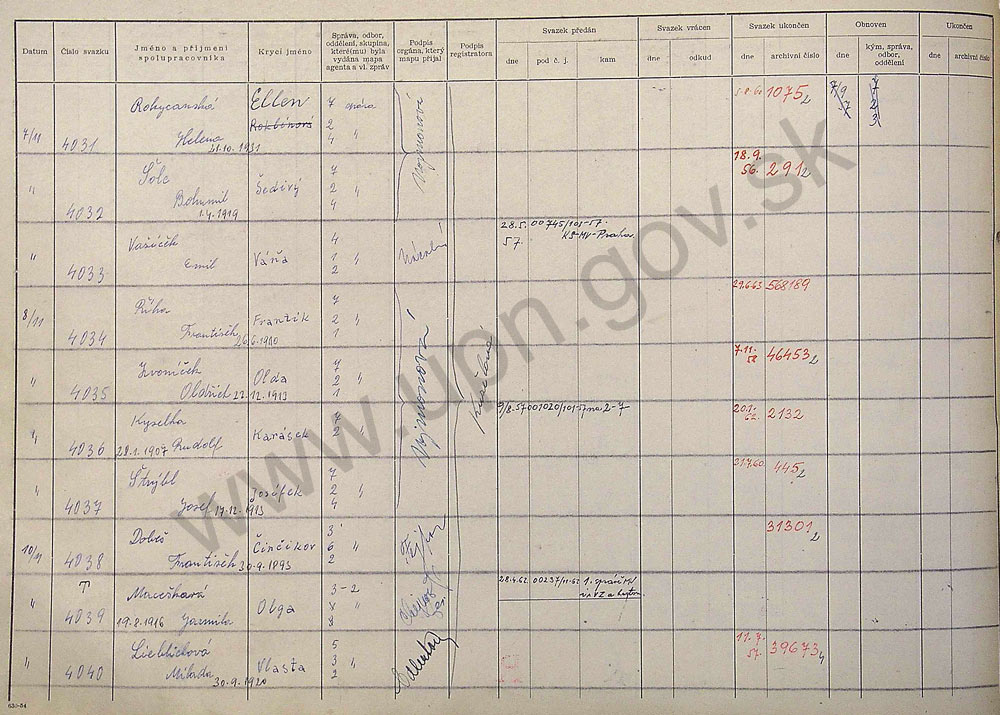 Datum
Číslo svazku
Jméno a příjmení
spolupracovníka
Krycí jméno
Správa, odbor,
oddělení, skupina,
které(mu) byla
vydána mapa
agenta a vl. zpráv
Podpis
orgána, který
mapu přijal
Podpis
registratora
Svazek předán
dne
pod č. j.
kam
Svazek vrácen
dne
odkud
Svazek ukončen
dne
archivní číslo
Obnoven
dne
kým, správa,
odbor,
oddělení
Ukončen
dne
archivní číslo
7/11
4031
Rokycanská
Helena
21.10.1931
Ellen
7 správa
2
4 "
1075
7/9
57
7
2
3
"
4032
Šolc
Bohumil
1.4.1919
Šedivý
7
2 "
4
18.9.
56.
291
"
4033
Vašíček
Emil
Váňa
4
1 "
2
28.5.
57.
00745/101-57.
KS-MV-Praha.
8/11
4034
Říha
František
26.6.1910
Frantík
7
2 "
1
29.6.63
568189
"
4035
Zvoníček
Oldřich 22.12.1913
Olda
7
2 "
1
7.11.
58
46453
"
4036
Kyselka
28.1.1907 Rudolf
Karásek
7
2 "
9/8.57 001020/101-57 na 2-7
20.1.
62.
2132
"
4037
Štrýbl
Josef 17.12.1913
Josífek
7
2 "
4
Vojmonová
21.7.60.
445
10/11
4038
Dobeš
František 30.9.1893
Činčikov
3
6 "
2
31301
"
4039
Macešková
19.8.1916 Jarmila
Olga
3-2
8 "
8
28.4.62
00237/11-62
"
4040
Lieblichová
Milada
30.9.1920
Vlasta
5
3 "
2
11.7.
57.
39673
630-54
www.upn.gov.sk